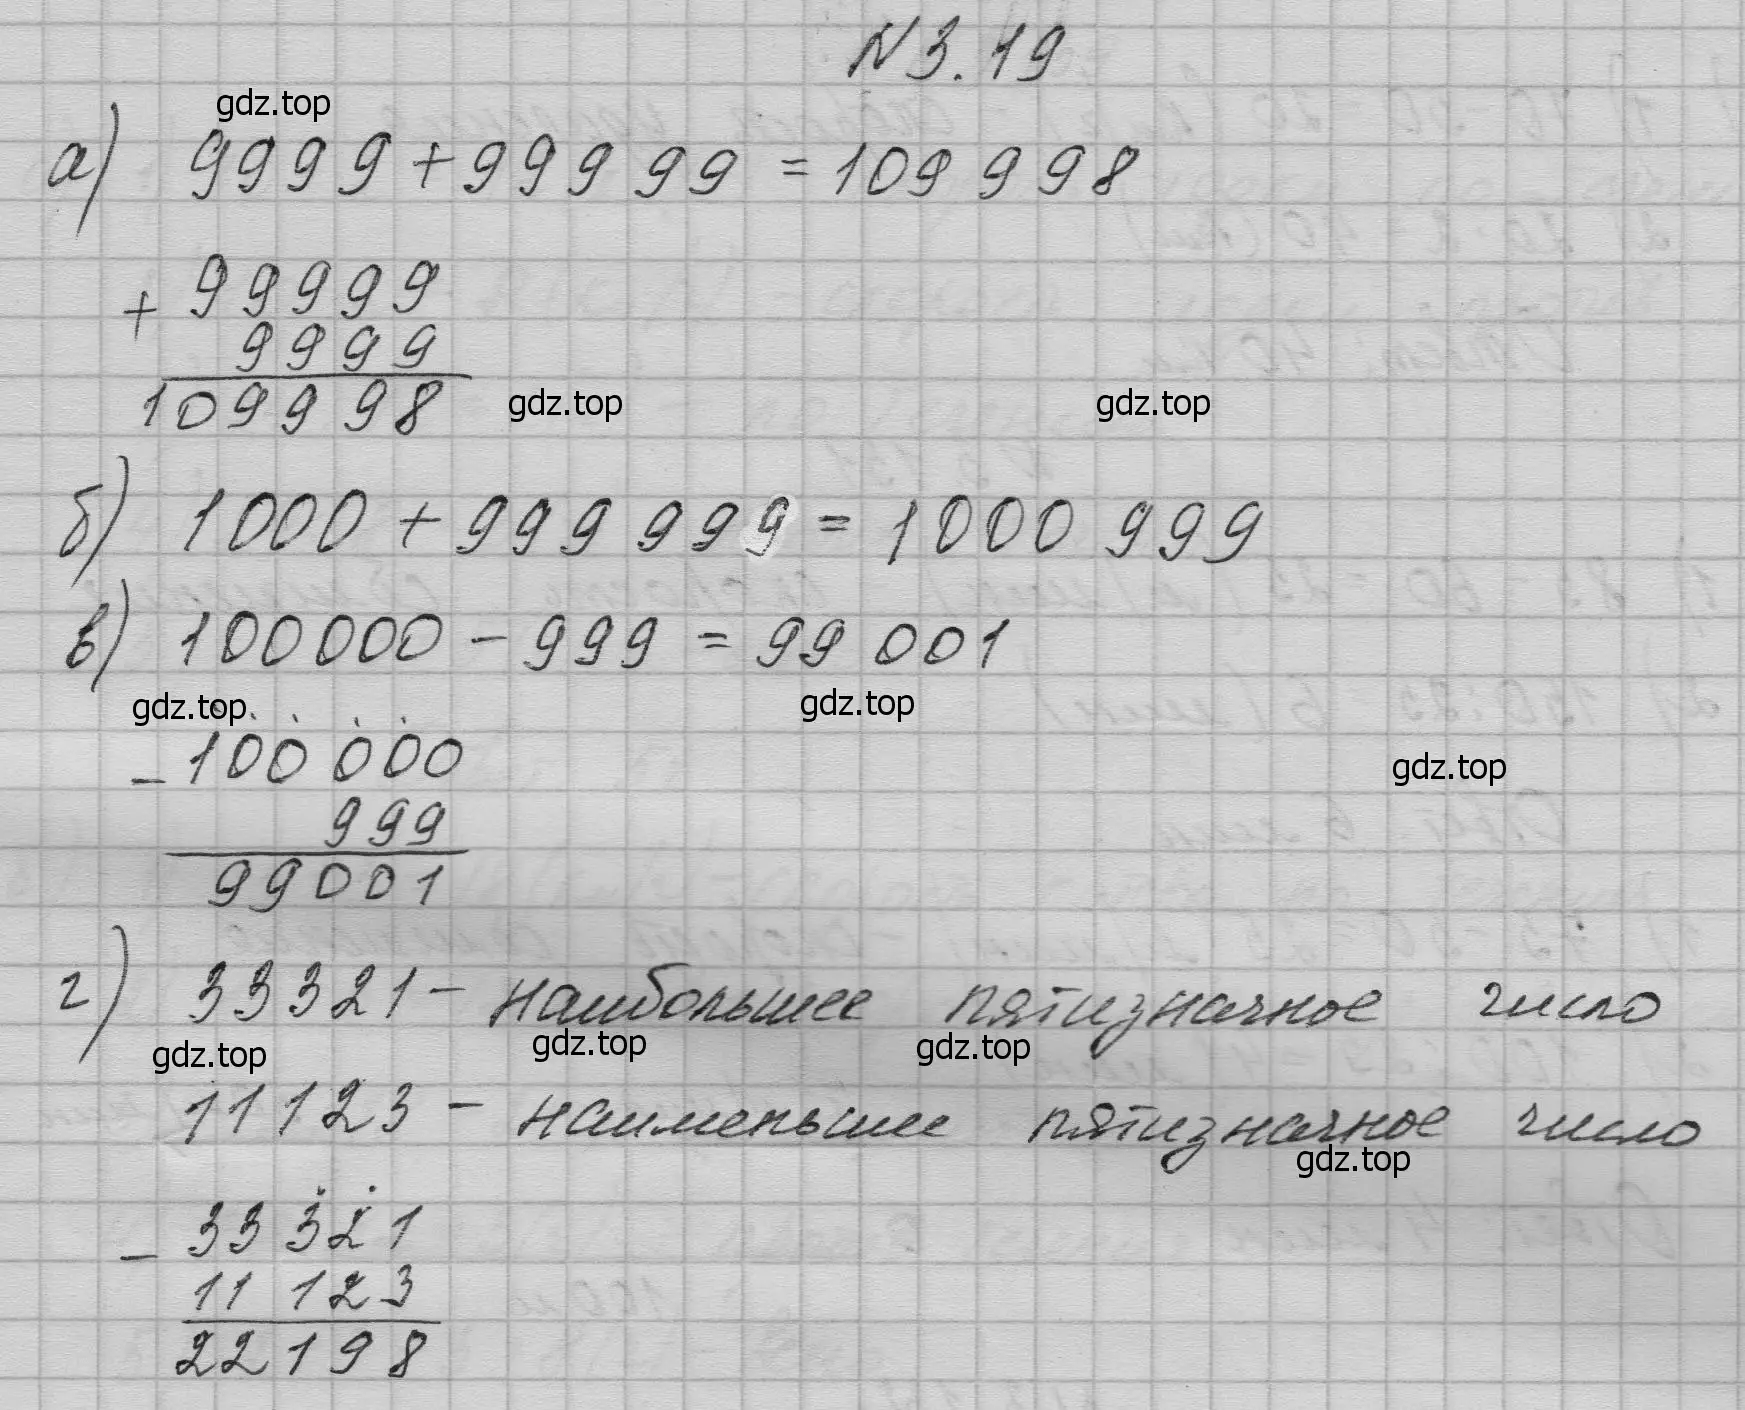 N3.19
gdz.top
а) 9999 + 99999 = 109 998
+ 99999
9999
109998
gdz.top gdz.top
б) 1000 + 999 999 = 1000 999
в) 100000 - 999 = 99 001
gdz.top gdz.top
- 100 000
gdz.top
999
99001
г) 33321 - наибольшее пятизначное число
gdz.top gdz.top gdz.top
11123 - наименьшее пятизначное число
gdz.top
- 33 321
11 123
22198